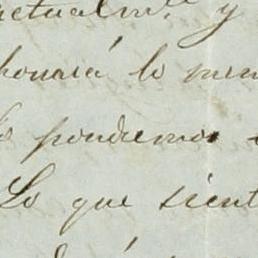 actualmte y
honrará lo men
lo pondremos
Lo que sient